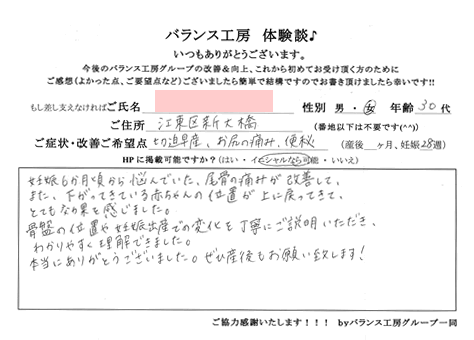 バランス工房 体験談♪
いつもありがとうございます。
今後のバランス工房グループの改善&向上、これから初めてお受け頂く方のために
ご感想(よかった点、ご要望点など)ございましたら簡単で結構ですのでお書き頂けましたら幸いです!!
もし差し支えなければご氏名 性別 男・女 年齢 30代
ご住所 江東区新大橋 (番地以下は不要です(^^))
ご症状・改善ご希望点 切迫早産、お尻の痛み、便秘 (産後 ヶ月、妊娠28週)
HPに掲載可能ですか?(はい・イニシャルなら可能・いいえ)
妊娠6か月頃から悩んでいた、尾骨の痛みが改善して、
また、下がってきている赤ちゃんの位置が上に戻ってきて、
とても効果を感じました。
骨盤の位置や妊娠出産での変化を丁寧にご説明いただき、
わかりやすく理解できました。
本当にありがとうございました。ぜひ産後もお願い致します!
ご協力感謝いたします!!! byバランス工房グループ一同